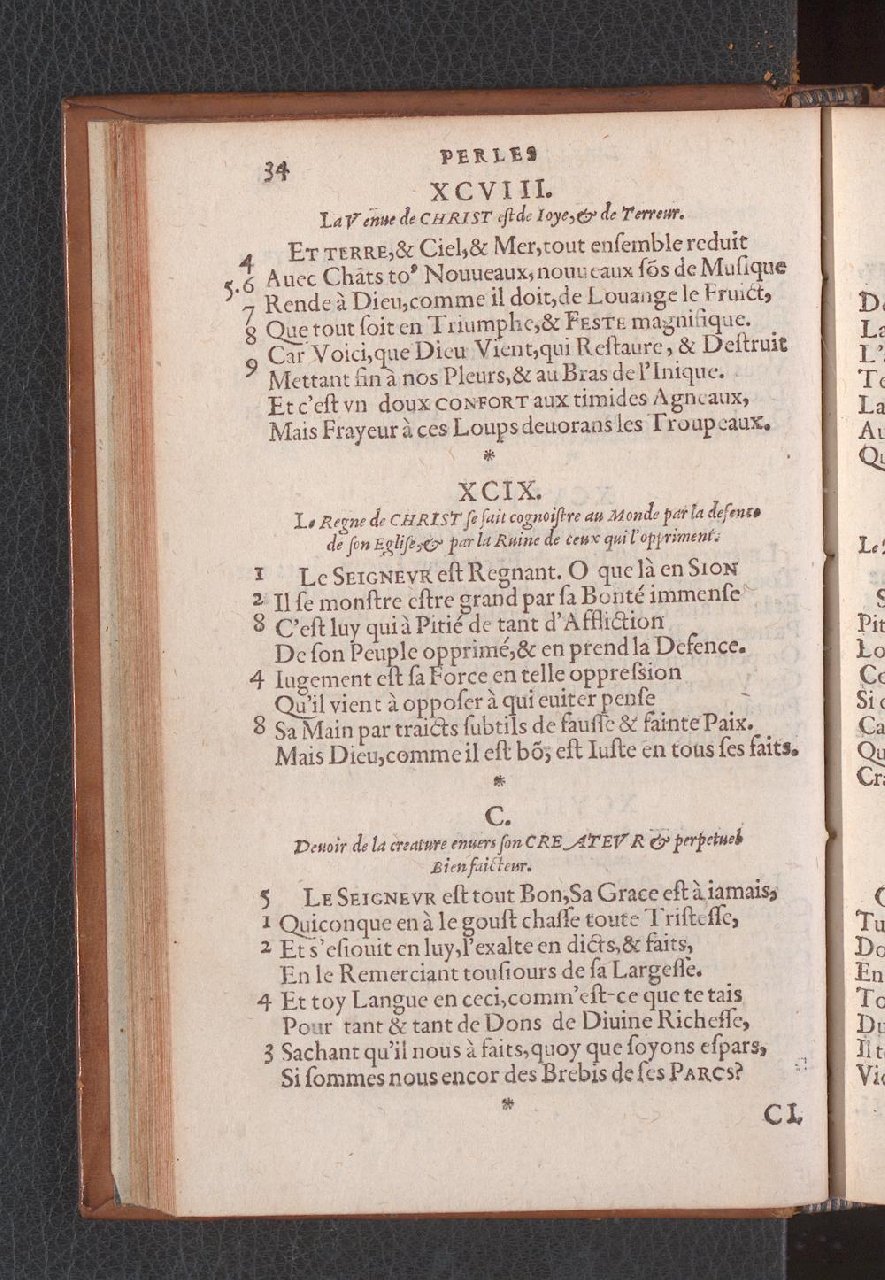 34 PERLES
XCVIII.
La Venue de CHRIST est de Ioye, & de Terreur.
ET TERRE, & Ciel, & Mer, tout enſemble reduit
4 Auec Chãts toꝰ Nouueaux, nouueaux ſõs de Muſique
5.6 Rende à Dieu, comme il doit, de Louange le Fruict,
7 Que tout ſoit en Triumphe, & FESTE magnifique.
8 Car Voici, que Dieu Vient, qui Reſtaure, & Deſtruit
9 Mettant fin à nos Pleurs, & au Bras de l'Inique.
Et c'eſt vn doux CONFORT aux timides Agneaux,
Mais Frayeur à ces Loups deuorans les Troupeaux.
*
XCIX.
Le Regne de CHRIST ſe fait cognoiſtre au Monde par la defence
de ſon Egliſe, & par la Ruine de ceux qui l'oppriment.
1 Le SEIGNEVR eſt Regnant. O que là en SION
2 Il ſe monſtre eſtre grand par ſa Bonté immenſe
8 C'eſt luy qui à Pitié de tant d'Affliction
De ſon Peuple opprimé, & en prend la Defence.
4 Iugement eſt ſa Force en telle oppreſsion
Qu'il vient à oppoſer à qui euiter penſe
8 Sa Main par traicts ſubtils de fauſſe & fainte Paix.
Mais Dieu, comme il eſt bõ, eſt Iuſte en tous ſes faits.
*
C.
Deuoir de la creature enuers ſon CREATEVR & perpetuel
Bienfaicteur.
5 LE SEIGNEVR eſt tout Bon, Sa Grace eſt à iamais,
1 Quiconque en à le gouſt chaſſe toute Triſteſſe,
2 Et s'eſiouit en luy, l'exalte en dicts, & faits,
En le Remerciant touſiours de ſa Largeſſe.
4 Et toy Langue en ceci, comm'eſt-ce que te tais
Pour tant & tant de Dons de Diuine Richeſſe,
3 Sachant qu'il nous à faits, quoy que ſoyons eſpars,
Si ſommes nous encor des Brebis de ſes PARCS?
*
CI.
De
La
L'
To
La
Au
Qu
Le
S
Pit
Lo
Ce
Si
Ca
Qu
Cra
Tu
Do
En
To
Du
Il t
Vi